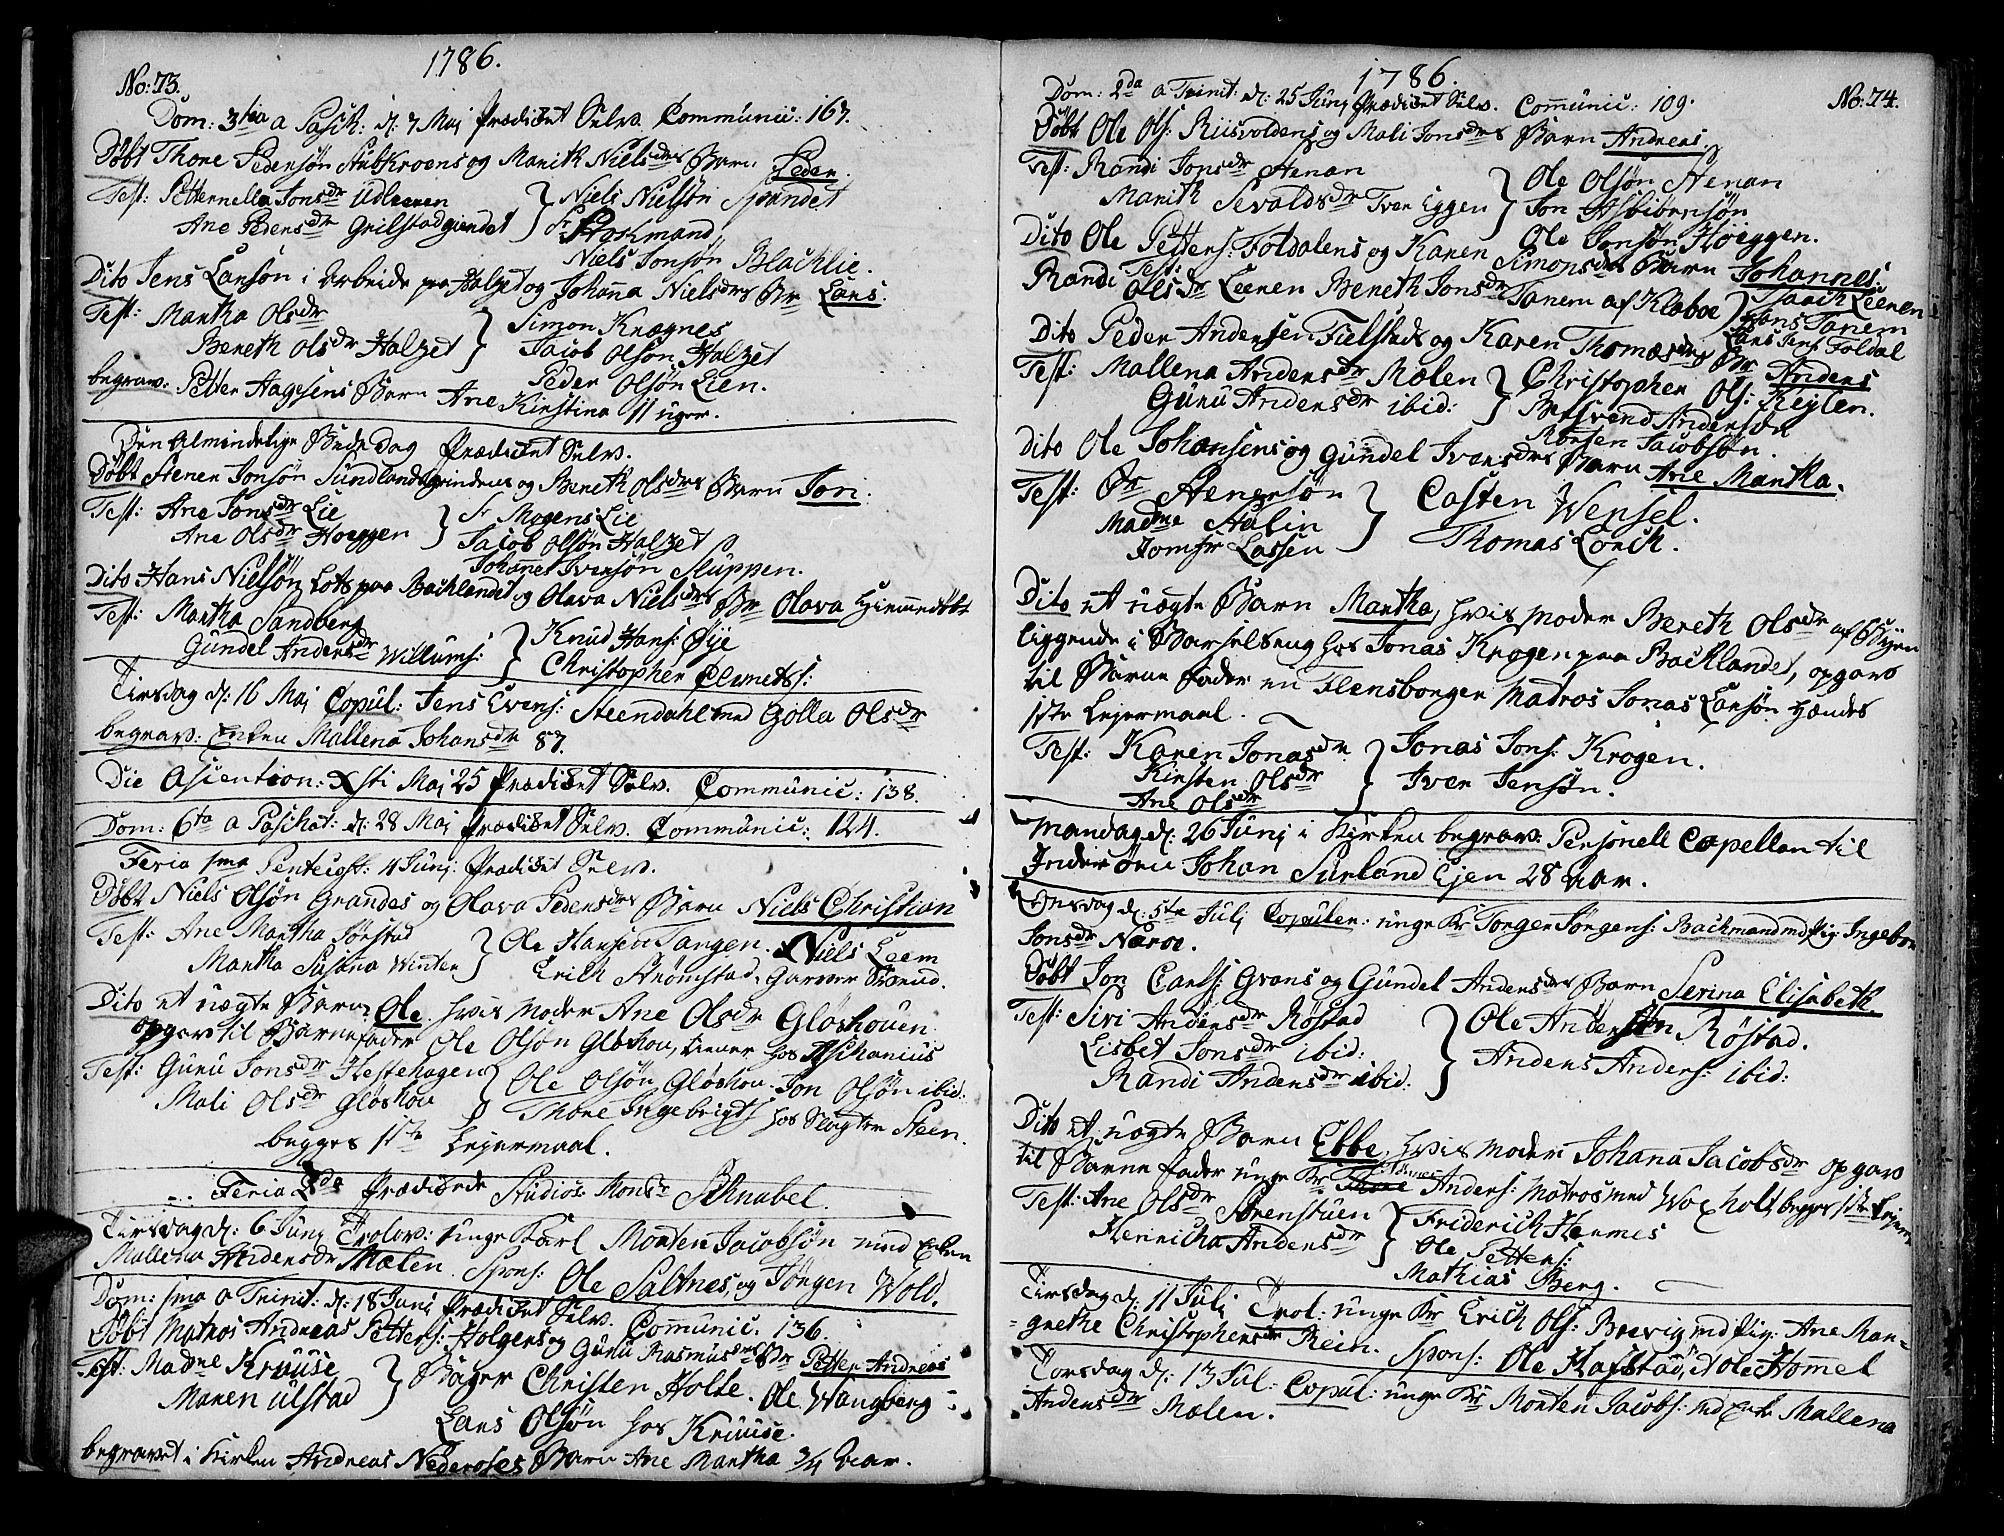 No: 73.
1786.
Dom: 3tia a Pasch: d: 7 Maj Prædicet Selv. Communic: 167.
Døbt Thore Pedersøn Aubkroens og Marith Nielsdrs Barn Peder.
Test: Petternella Jonsdr Udleeren } Niels Nielsøn Spandet
Ane Pedersdr Grilstadgrendet } Sr Stockmand
Niels Jonsøn Blachlie.
Dito Jens Larsøn i Arbeide paa Halset og Johana Nielsdrs Br Lars.
Test: Martha Olsdr } Simon Kragnes
Bereth Olsdr Halset } Jacob Olsøn Halset
Peder Olsøn Lien.
begrav: Petter Aagesens Barn Ane Kirstina 11 uger.
Den Almindelige Bede Dag Prædicet Selv.
Døbt Stener Jonsøn Sundlandsgrindens og Bereth Olsdrs Barn Jori.
Test: Ane Jonsdr Lie } Sr Mogens Lie
Ane Olsdr Hoeggen } Jacob Olsøn Halset
Johanes Iversøn Sluppen.
Dito Hans Nielsøn Lots paa Backlandet og Olava Nielsdrs Br Olava Hiemmedøbt
Test: Martha Sandberg } Knud Hans: Øye
Gundel Andersdr Willums: } Christopher Clemets:
Tirsdag d: 16 Maj Copul: Jens Evens: Steendahl med Golla Olsdr
begrav: Enken Mallena Johansdr 87.
Die Ascention: Xsti Maj 25 Prædicet Selv. Communic: 138.
Dom: 6ta a Paschat: d: 28 Maj Prædicet Selv. Communic: 124.
Feria 1ma Pentecost: 4 Junj: Prædicet Selv.
Døbt Niels Olsøn Grandes og Olava Pedersdrs Barn Niels Christian
Test: Ane Martha Sørstad } Ole Hansen Tangen. Niels Leem
Martha Susana Winter } Erich Strømstad, Garver
Dito et uægte Barn Ole. hvis Moder Ane Olsdr Gløshouen
opgav til Barnefader Ole Olsøn Gløshou, tiener hos Aschanius
Test: Guru Jonsdr Hestehagen } Ole Olsøn Gløshou. Jon Olsøn ibid:
Mali Olsdr Gløshou } Thore Ingebrigts: hos Slagter Steen.
begges 1ste Lejermaal.
Feria 2da Prædicede Studios: Monsr Schnabel.
Tirsdag d: 6 Junj Trolov: unge Karl Morten Jacobsøn med Enken
Mallena Andersdr Mælen. Spons: Ole Saltnes, og Jørgen Wold.
Dom: 1ma a Trinit: d: 18 Junj Prædicet Selv. Communic. 136.
Døbt Matros Andreas Petters: Holgers og Guru Rasmusdrs Br Petter Andreas
Test: Madme Kruuse } Bager Christen Holte. Ole Wangberg
Maren Ulstad } Lars Olsøn hos Kruuse.
begravet i Kirken Andreas Nederoses Barn Ane Martha 3/4 Aar.
1786.
No: 74.
Dom: 2da a Trinit: d: 25 Junj Prædicet Selv. Communic: 109.
Døbt Ole Ols: Riisvoldens og Mali Jonsdrs Barn Andreas.
Test: Randi Jonsdr Stenan } Ole Olsøn Stenan
Marith Sevaldsdr Tver Eggen } Jon Asbiørnsøn
Ole Jonsøn Hoeggen.
Dito Ole Petters: Foldalens og Karen Simonsdrs Barn Johannes.
Test: Randi Olsdr Leeren Bereth Jonsdr Tanem af Klæboe } Isaach Leeren
Hans Tanem
Lars Jens: Foldal
Dito Peder Andersen Fielstad og Karen Thomæsdrs Br Anders
Test: Mallena Andersdr Mælen } Christopher Ols: Reflen.
Guru Andersdr ibid: } Bersvend Andersen
Morten Jacobsøn.
Dito Ole Johansens og Gundel Iversdrs Barn Ane Martha.
Test: Br Stenersøn } Casten Wensel.
Madme Stalin } Thomas Lorck.
Jomfr Lassen
Dito et uægte Barn Martha, hvis Moder Bereth Olsdr af Byen
liggende i Barselseng hos Jonas Krogen paa Backlandet, opgav
til Barne fader en Flensborger Matros Jonas Larsøn Hendes
1ste Lejermaal.
Test: Karen Jonasdr } Jonas Jons: Krogen.
Kirsten Olsdr } Iver Jensøn.
Ane Olsdr
Mandag d: 26 Junj i Kirken begrav: Personell Capellan til
Inderøen Johan Surland Ejen 28 aar.
Onsdag d: 5te Julj Copuler: unge Kr Torger Jørgens: Backmand med Pig: Ingebor
Jonsdr Nærøe.
Døbt Jon Carls: Grans og Gundel Andersdrs Barn Serina Elisabeth.
Test: Siri Andersdr Røstad } Ole Andersøn Røstad.
Lisbet Jonsdr ibid: } Anders Anders: ibid:
Randi Andersdr ibid:
Dito et uægte Barn Ebbe, hvis Moder Johana Jacobsdr opgav
til Barne fader unge Kr Anders: Matros med Woxholt, begges 1ste Lejerm
Test: Ane Olsdr Sørenstuen } Friderich Hermes
Henricha Andersdr } Ole Petters:
Mathias Berg.
Tirsdag d: 11 Julj Trol: unge Kr Erich Ols: Brevig med Pig: Ane Mar-
grethe Christophersdr Rein. Spons: Ole Hafstad, et Ole Hommel
Torsdag d: 13 Jul: Copul: unge Kr Morten Jacobs: med Enk: Mallena
Andersdr Mælen.